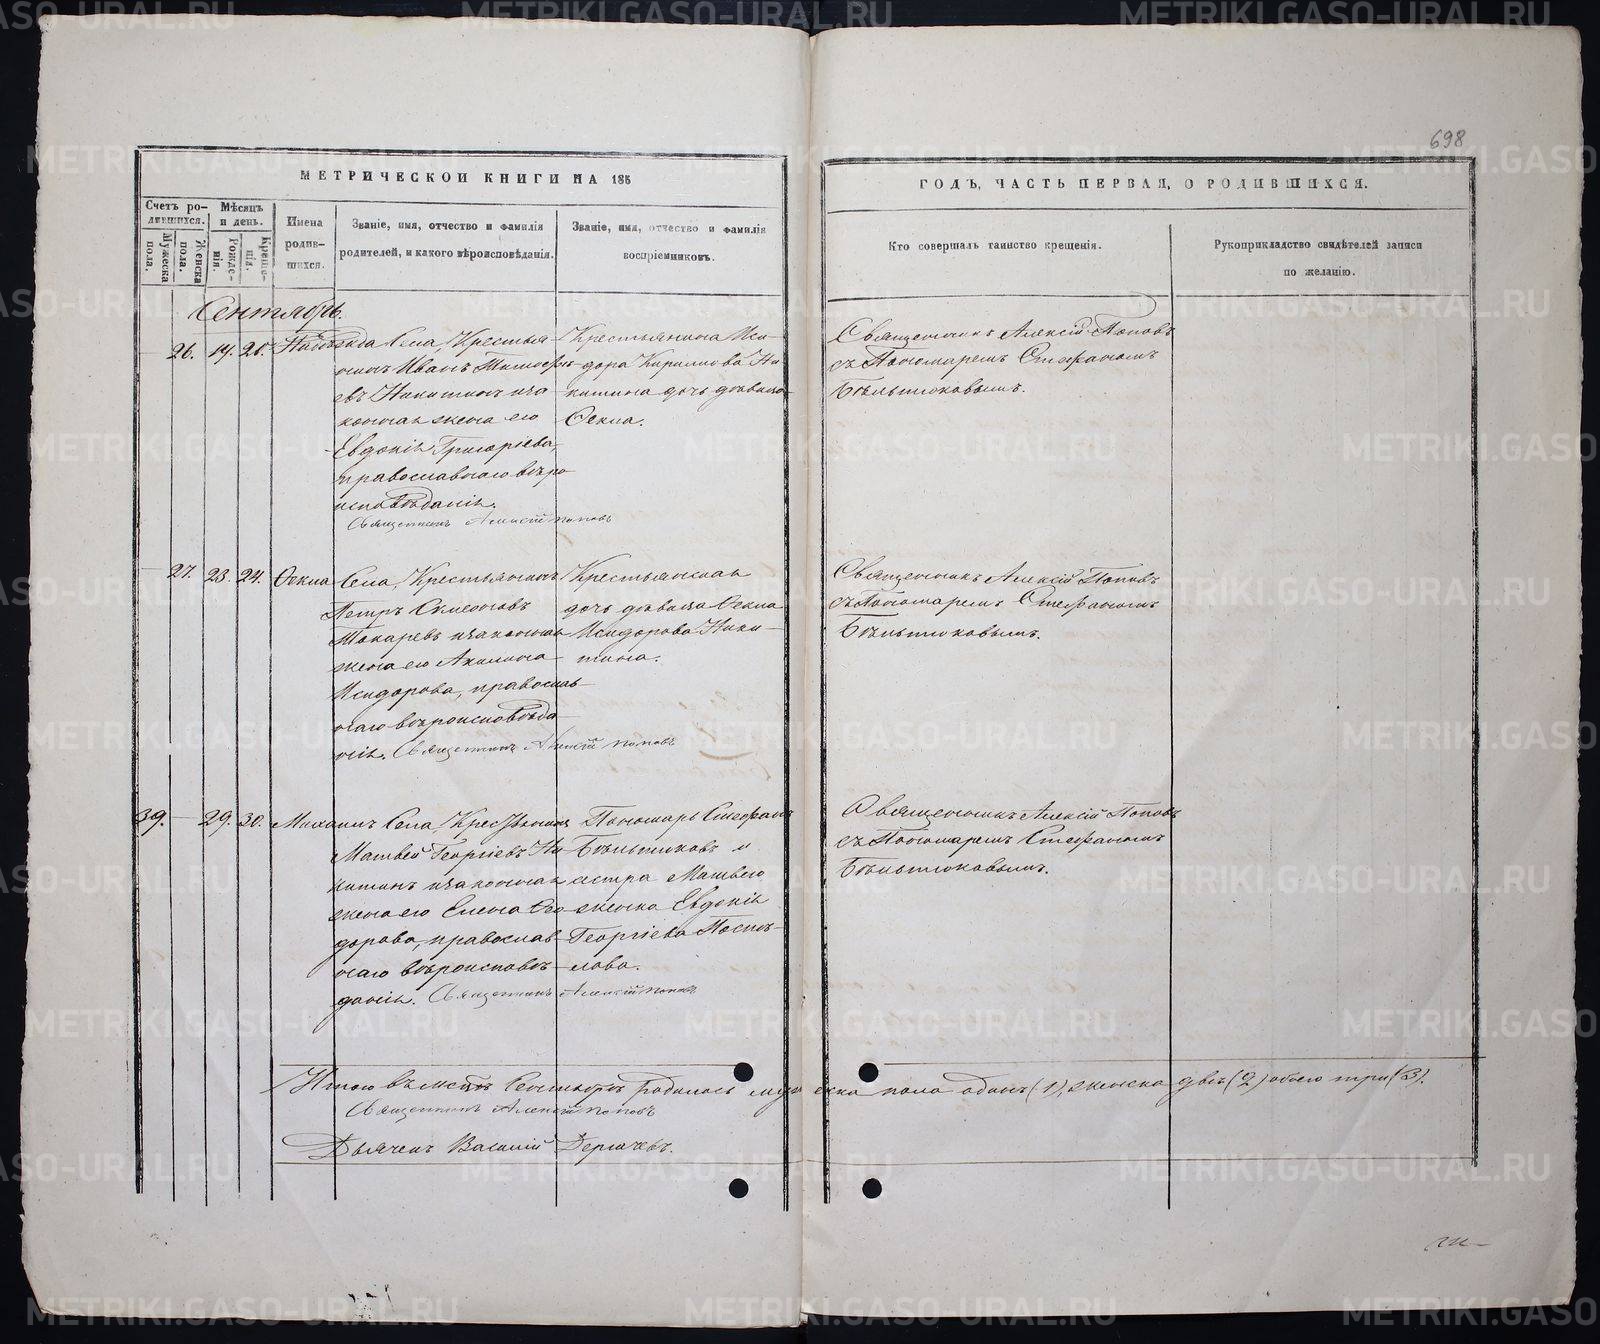 698
МЕТРИЧЕСКОЙ КНИГИ НА 185
ГОДЪ, ЧАСТЬ ПЕРВАЯ, О РОДИВШИХСЯ.
Счетъ ро-
дившихся.
Мужеска
пола.
Женска
пола.
Мѣсяцъ
и день.
Рожде-
нія.
Креще-
нія.
Имена
родив-
шихся.
Званіе, имя, отчество и фамилія
родителей, и какого вѣроисповѣданія.
Званіе, имя, отчество и фамилія
воспріемниковъ.
Кто совершалъ таинство крещенія.
Рукоприкладство свидѣтелей записи
по желанію.
Сентябрь.
26. 19. 20. Надѣжда
Села, Крестья-
нинъ Иванъ Тимофѣ-
евъ Никитинъ и за
конная жена его
Евдокія Григоріева,
православнаго вѣро
исповѣданія.
Священникъ Алексій Поповъ
Крестьянина Иси-
дора Кирилова Ни
китина дочь дѣвица
Ѳекла.
Священникъ Алексій Поповъ
съ Пономаремъ Стефаномъ
Бѣльтюковымъ.
27. 23. 24. Ѳекла
Села, Крестьянинъ
Петръ Семеновъ
Макаревъ и законная
жена его Акилина
Исидорова, православ-
наго вѣроисповѣда-
нія. Священникъ Алексій Поповъ
Крестьянская
дочь дѣвица Ѳекла
Исидорова Ники-
тина.
Священникъ Алексій Поповъ
съ Пономаремъ Стефаномъ
Бѣльтюковымъ.
39. 29. 30. Михаилъ
Села, Крестьянинъ
Матвей Георгіевъ Ни
китинъ и законная
жена его Елена Ѳео
дорова, православ-
наго вѣроисповѣ-
данія. Священникъ Алексій Поповъ
Пономарь Стефанъ
Бѣльтюковъ и
сестра Матвею
женка Евдокія
Георгіева Поспѣ-
лова.
Священникъ Алексій Поповъ
съ Пономаремъ Стефаномъ
Бѣльтюковымъ.
Итого въ мецѣ Сентябрѣ родилось мужеска пола одинъ (1), женска двѣ (2) обоего три (3).
Священникъ Алексій Поповъ
Дьячекъ Василій
METRIKI.GASO-URAL.RU